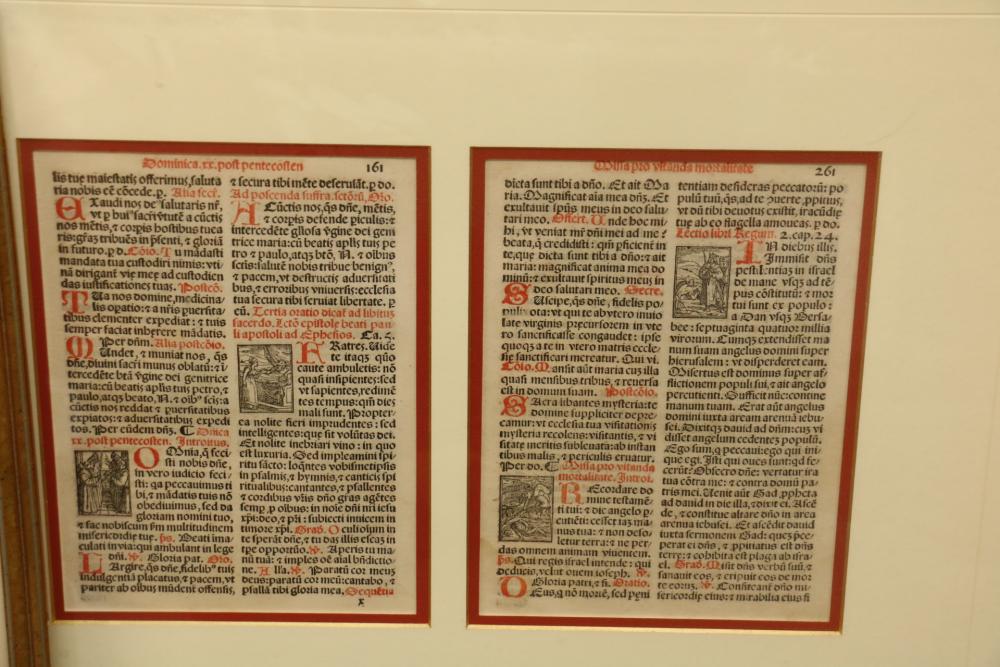 Dominica.xx.post pentecosten 161
lis tue maiestatis offerimus, saluta
ria nobis eē cōcede. p. Alia secr.
Exaudi nos de⁹ salutaris nr̄,
vt p huī sacri v̄tutē a cūctis
nos mētis, ⁊ corpis hostibus tuea
ris: grāz tribuēs in p̄senti, ⁊ gloriā
in futuro. p. d. Cōio. Tu mādasti
mandata tua custodiri nimis: vti
nā dirigant vie mee ad custodien
das iustificationes tuas. Postcō.
Tua nos domine, medicina
lis opatio: ⁊ a nr̄is puersita
tibus clementer expediat: ⁊ tuis
semper faciat inherere mādatis.
Per dn̄m. Alia postcōio.
Mundet, ⁊ muniat nos, q̄s
dn̄e, diuini sacri munus oblatū: ⁊ ī
tercedēte btā v̄gine dei genitrice
maria: cū beatis aplis tuis petro, ⁊
paulo, atqz beato, N. ⁊ oib⁹ scis: a
cūctis nos reddat ⁊ puersitatibus
expiatos: ⁊ aduersitatibus expedi
tos. Per eūdem dn̄z. ¶ Dn̄ica
xx. post pentecosten. Introitus.
Omnia, q̄ feci
sti nobis dn̄e,
in vero iudicio feci/
sti: qa peccauimus ti
bi, ⁊ mādatis tuis nō
obediuimus, sed da
gloriam nomini tuo,
⁊ fac nobiscum s̄m multitudinem
misericordie tue. ps. Beati ima/
culati in via: qui ambulant in lege
dn̄i. ℣. Gloria pat. Oro.
Largire, q̄s dn̄e, fidelib⁹ tuis
indulgentiā placatus, ⁊ pacem, vt
pariter ab oībus mūdent offensis,
⁊ secura tibi mēte deseruiāt. p do.
Ad poscenda suffra. sctōrū, Oro.
A Cūctis nos, q̄s dn̄e, mētis,
⁊ corpis defende piculis: ⁊
intercedēte gl̄iosa v̄gine dei geni
trice maria: cū beatis aplis tuis pe
tro ⁊ paulo, atqz btō, N. ⁊ oībus
sctis: salutē nobis tribue benign⁹,
⁊ pacem, vt destructis aduersitati
bus, ⁊ erroribus vniuersis: ecclesia
tua secura tibi seruiat libertate. p
eū. Tertia oratio dicat ad libitus
sacerdo. Lectō epistole beati pau
li apostoli ad Ephesios. Ca. 5.
FRatres. Uide
te itaqz quō
caute ambuletis: nō
quasi insipientes: sed
vt sapientes, redimē
tes tempus: qm̄ dies
mali sunt. Propter/
ea nolite fieri imprudentes: sed
intelligentes: que sit volūtas dei.
Et nolite inebriari vino: in quo
est luxuria. Sed impleamini spi
ritu sācto: loq̄ntes vobismetipsis
in psalmis, ⁊ hymnis, ⁊ canticis spi
ritualibus: cantantes, ⁊ psallentes
⁊ cordibus vr̄is dn̄o gr̄as agētes
semp, p oībus: in noīe dn̄i nr̄i iesu
xp̄i: deo, ⁊ pr̄i: subiecti inuicem in
timore xp̄i. Grad. Oculi oīum in
te sperāt dn̄e, ⁊ tu das illis escaz in
tpe opportūo. ℣. Aperis tu ma/
nū tuā: ⁊ imples oē aīal bn̄dictio/
ne. Alla. ℣. Paratū cor meū
deus: paratū cor meū: cantabo, ⁊
psallā tibi gloria mea. Sequētia
x
Missa pro vitanda mortalitate 261
dicta sunt tibi a dn̄o. Et ait Ma
ria. Magnificat aīa mea dn̄z. Et
exultauit sp̄us meus in deo salu/
tari meo. Offert. Unde hoc mi
bi, vt veniat mr̄ dn̄i mei ad me?
beata, q̄ credidisti: qm̄ pficient in
te, que dicta sunt tibi a dn̄o: ⁊ ait
maria: magnificat anima mea do
minū: ⁊ exultauit spiritus meus in
deo salutari meo. Secre.
Suscipe, q̄s dn̄e, fidelis po/
puli vota: vt qui te ab vtero inuio
late virginis precursorem in vte
ro sanctificasse congaudet: ipse
quoqz a te in vtero matris eccle/
sie sanctificari mereatur. Qui vi.
Cōio. Mansit aūt maria cuz illa
quasi mensibus tribus, ⁊ reuersa
est in domum suam. Postcōio.
Sacra libantes mysteria: te
domine suppliciter depre/
camur: vt ecclesia tua visitationis
mysteria recolens: visitantis, ⁊ vi
sitate meritis subleuata: ab instan
tibus malis, ⁊ periculis eruatur.
Per do. ¶ Missa pro vitanda
mortalitate. Introi.
REcordare do
mine testamē/
ti tui: ⁊ dic angelo p
cutiēti: cesset iaz ma/
nus tua: ⁊ non deso/
letur terra: ⁊ ne per/
das omnem animam viuentem.
ps. Qui regis israel intende: qui
deducis, velut ouem ioseph. ℣.
Gloria patri, ⁊ fi. Oratio.
DEus, q̄ nō mortē, sed peni
tentiam desideras peccatorū: po
pulū tuū, q̄s, ad te puerte, ppitius,
vt dū tibi deuotus existit, iracūdie
tue ab eo flagella amoueas. p do.
Lectio libri Regum. 2. cap. 24.
IN diebus illis.
Immisit dn̄s
pestilentiaz in israel
de mane vsqz ad tē
pus cōstitutū: ⁊ mor
tui sunt ex populo:
a Dan vsqz Bersa/
bee: septuaginta quatuor millia
virorum. Cumqz extendisset ma
num suam angelus domini super
hierusalem: vt disperderet eam.
Misertus est dominus super af
flictionem populi sui, ⁊ ait angelo
percutienti. Sufficit nūc: contine
manum tuam. Erat aūt angelus
domini iuxta aream areuna iebu/
sei. Dixitqz dauid ad dn̄m: cuz vi
disset angelum cedentez populū.
Ego sum, q peccaui: ego qui ini/
que egi. Isti qui oues sunt: qd fe/
cerūt: Obsecro dn̄e: vertatur ira
tua cōtra me: ⁊ contra domū pa/
tris mei. Uenit aūt Gad, ppheta
ad dauid in die illa, ⁊ dixit ei. Ascē
de, ⁊ constitue altare dn̄o in area
areuna iebusei. Et ascēdit dauid
iuxta sermonem Gad: quez p̄ce/
perat ei dn̄s, ⁊ ppitiatus est dn̄s
terre: ⁊ cohibita est plaga ab isra/
el. Grad. Misit dn̄s verbū suū, ⁊
sanauit eos, ⁊ eripuit eos de mor
te eorus. ℣. Confiteant dn̄o mi
sericordie eius: ⁊ mirabilia eius fi